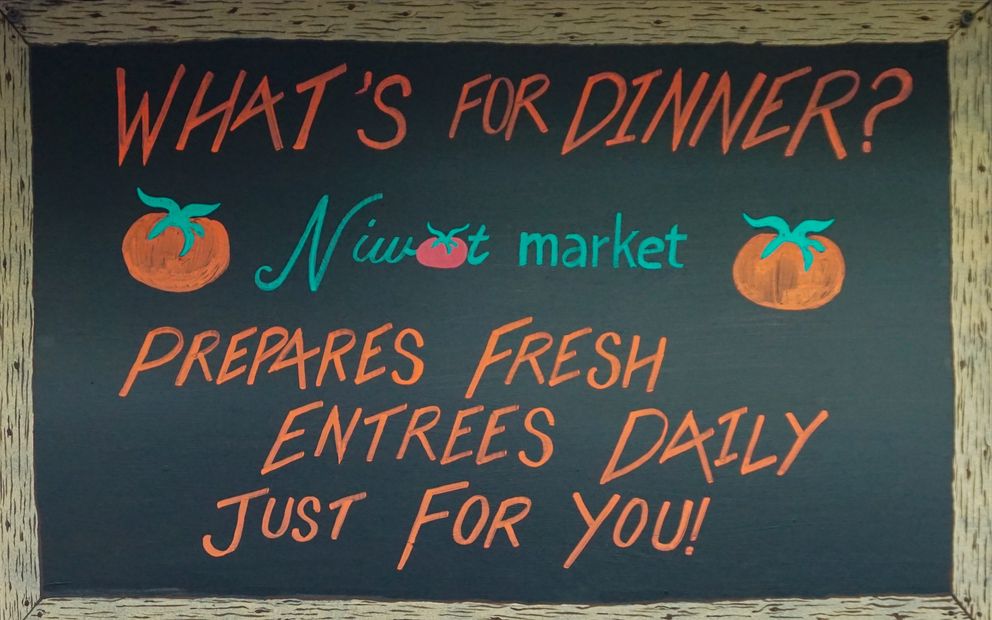 WHAT'S FOR DINNER?
Niwot market
PREPARES FRESH
ENTREES DAILY
JUST FOR YOU!